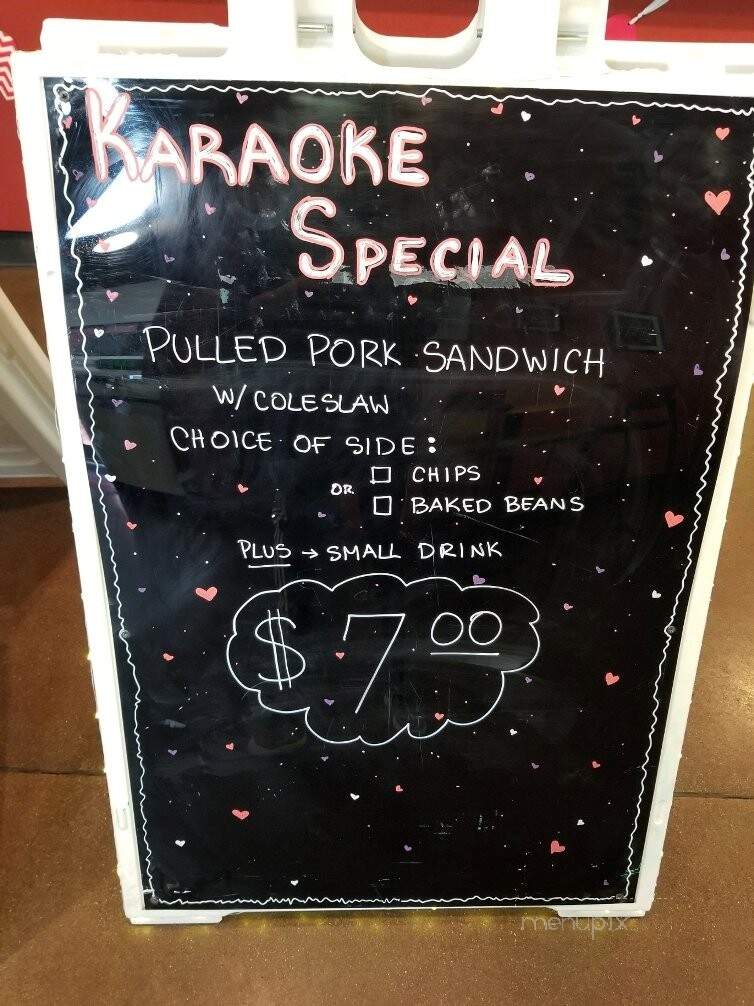 KARAOKE
SPECIAL
PULLED PORK SANDWICH
W/ COLESLAW
CHOICE OF SIDE:
☐ CHIPS
OR
☐ BAKED BEANS
PLUS → SMALL DRINK
$7.00
menupix